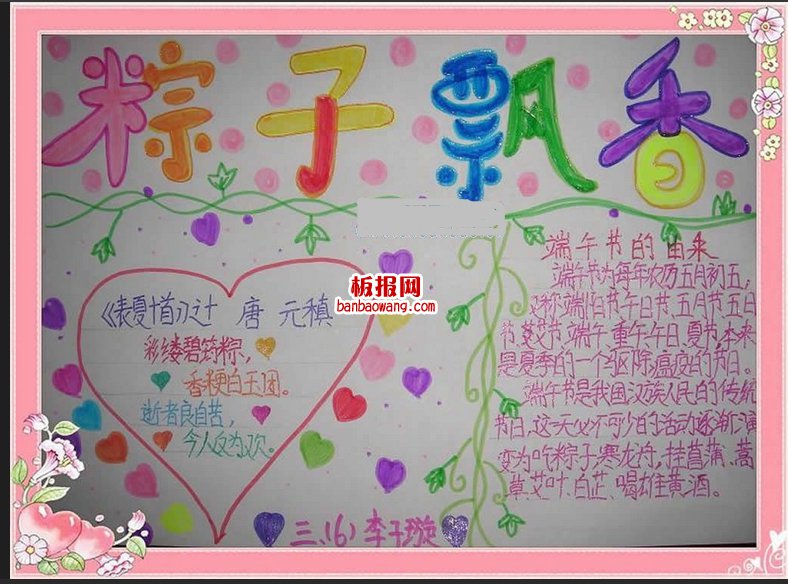 粽子飘香
板报网
banbaowang.com
《表夏十首》之十 唐 元稹
彩缕碧筠粽，
香粳白玉团。
逝者良自苦，
今人反为欢。
端午节的由来
端午节为每年农历五月初五，
又称端阳节、午日节、五月节、五日
节、艾节、端午、重午、午日、夏节，本来
是夏季的一个驱除瘟疫的节日。
端午节是我国汉族人民的传统
节日，这一天必不可少的活动逐渐演
变为吃粽子，赛龙舟，挂菖蒲、蒿
草、艾叶、白芷、喝雄黄酒。
三、(6) 李子璇